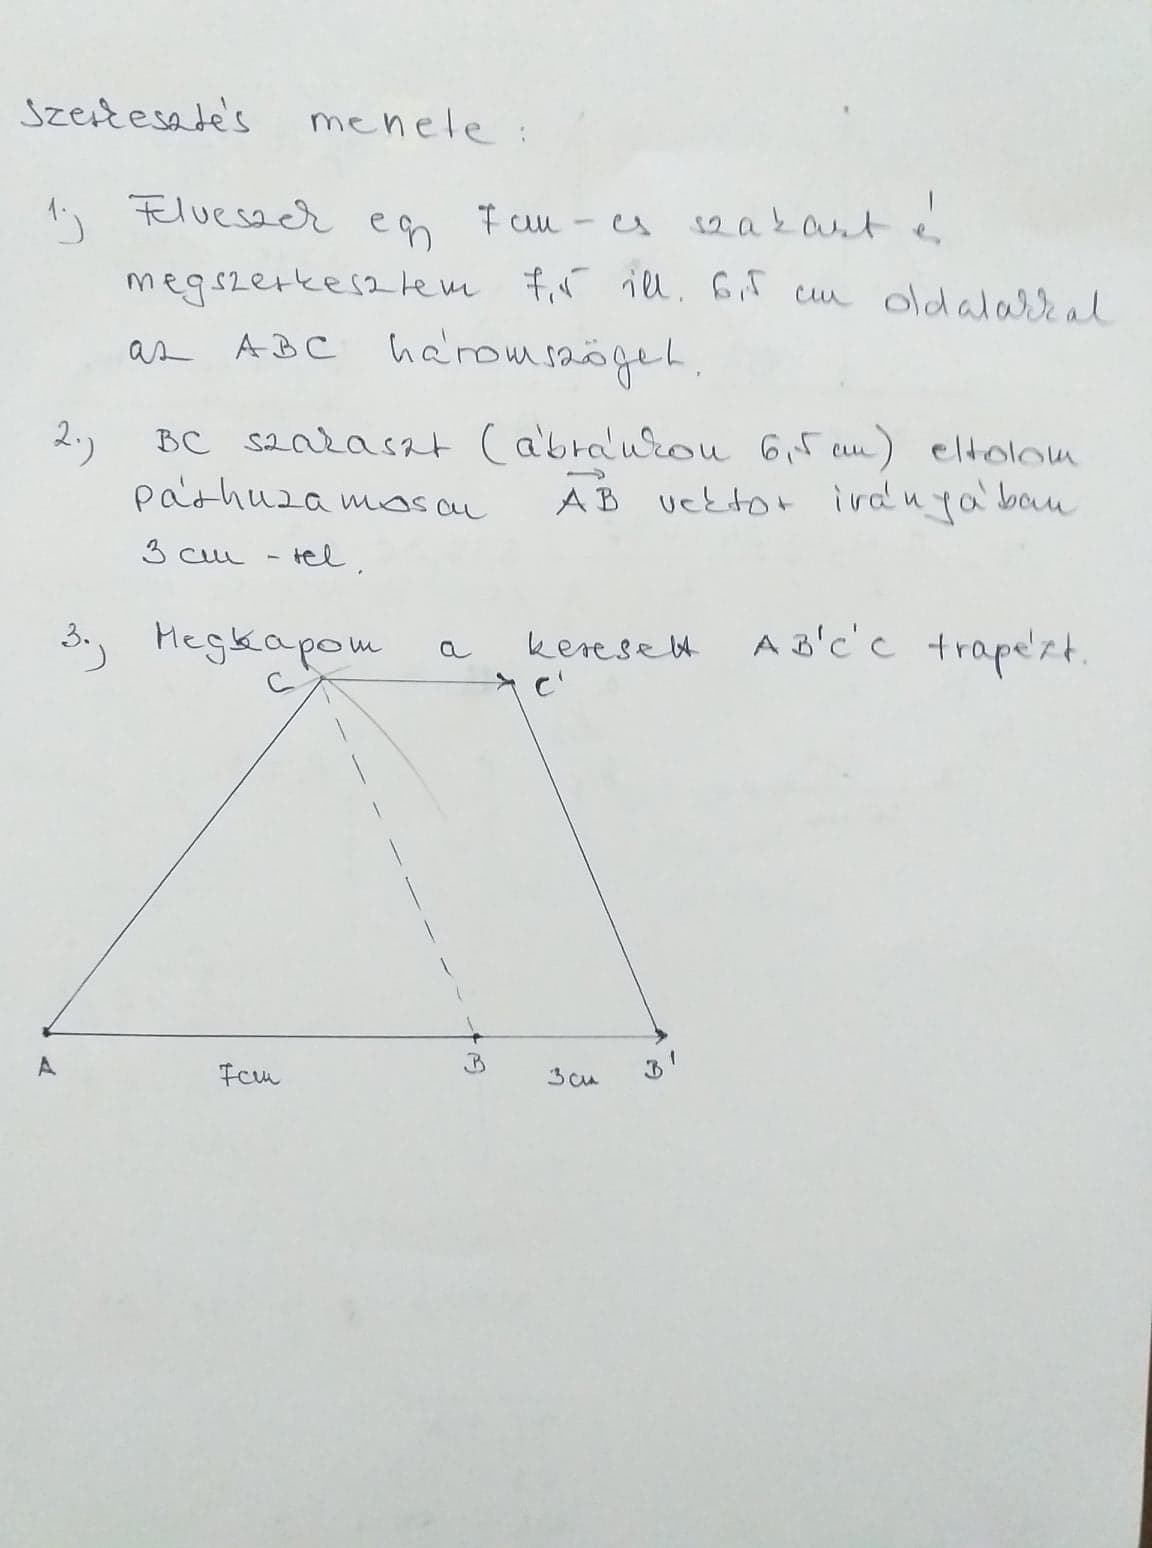 Szerkesztés menete:
1.) Felveszek egy 7 cm-es szakaszt és
megszerkesztem 7,5 ill. 6,5 cm oldalakkal
az ABC háromszöget.
2.) BC szakaszt (ábránkon 6,5 cm) eltolom
párhuzamosan AB vektor irányában
3 cm-rel.
3.) Megkapom a keresett AB'C'C trapézt.
C C'
A 7cm B 3cm B'